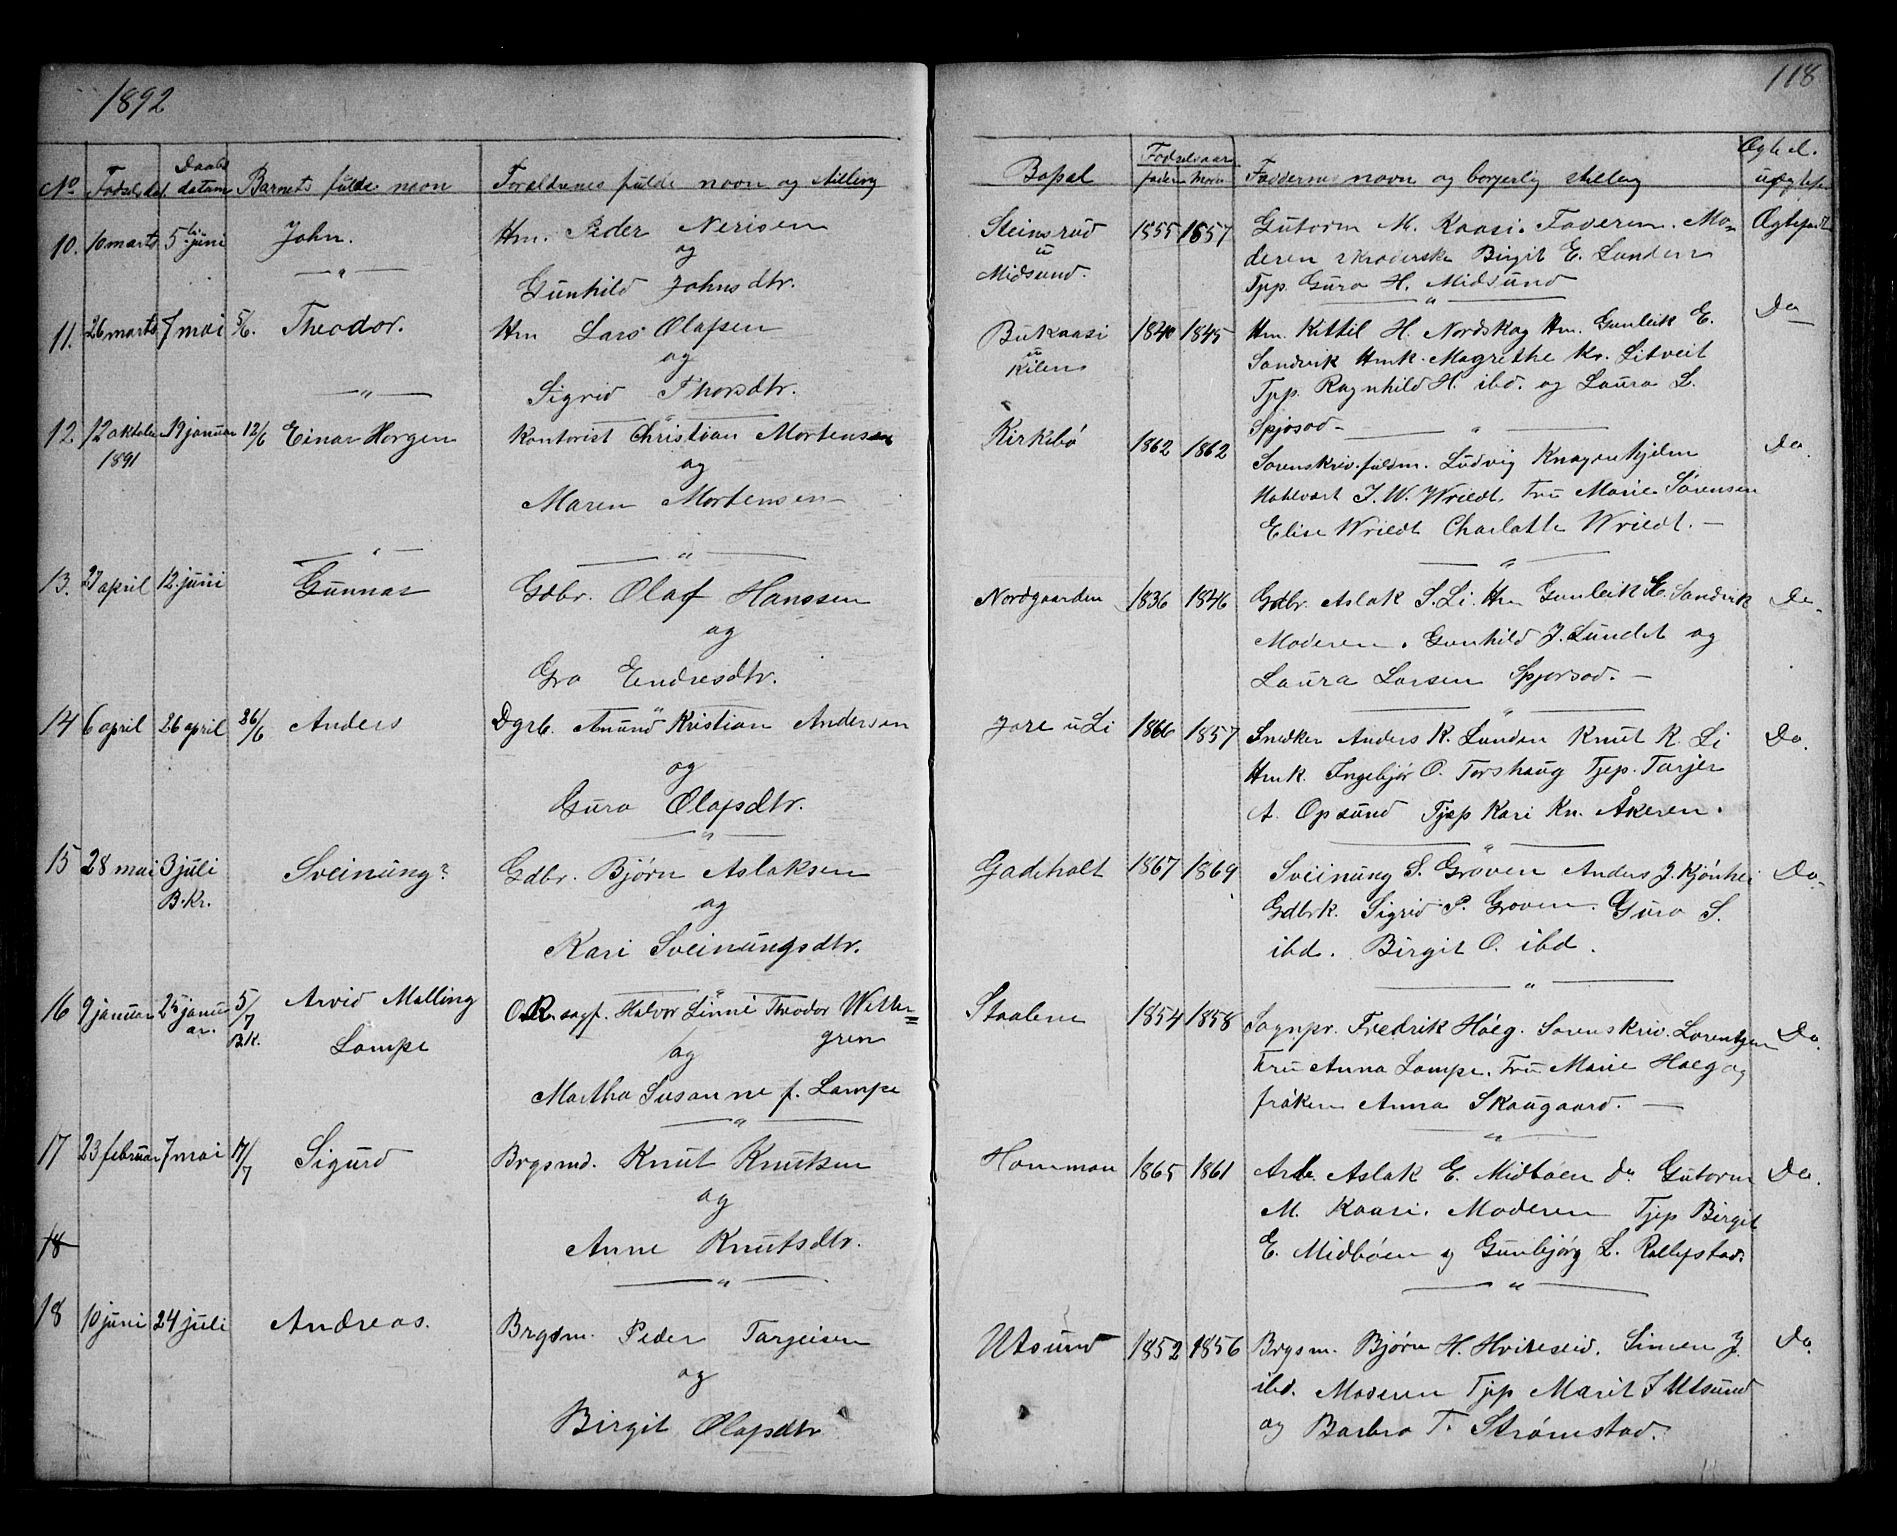 1892
118
No Fødselsdat. Daabs datum Barnets fulde navn Forældrenes fulde navn og stilling Bopæl Fødselsaar faders mors Faddernes navn og borgerlig stilling Ægte el. uægte
10. 10 marts 5te juni John. Hm. Peder Nerisen og Gunhild Johnsdtr. Steinsrud u Midsund. 1855 1857 Gutorm M. Kaasi. Faderen. Mo-
deren Skræderske Birgit E. Landen
Tjp. Guro H. Midsund
Ægtefødt
11. 26 marts 7 mai 5/6. Theodor. Hm Lars Olafsen og Sigrid Thorsdtr. Bukaasi u Kilen 1840 1845 Hm. Kittil H. Nordskog Hm. Gunleik E.
Sandvik Hmk. Magrethe Kn. Litveit
Tjp. Ragnhild H. ibd. og Laura L.
Spjosod
Do
12. 12 oktober 1891 19 januar 12/6 Einar Horgen Kontorist Christian Mortensen og Maren Mortensen Kirkebø 1862 1862 Sorenskriv.fuldm. Ludvig Knagenhjelm
J. W. Wriedt. Fru Marie Sørensen
Elise Wriedt Charlotte Wriedt.
Do.
13. 27 april 12. juni Gunnar Gdbr. Olaf Hanssen og Gro Endresdtr. Nordgaarden 1836 1846 Gdbr. Aslak S. Li. Hm Gunleik E. Sandvik
Moderen. Gunhild J. Lundet og
Laura Larsen Spjorsod.
Do.
14 6 april 26 april 26/6 Anders Dgrb. Amund Kristian Andersen og Guro Olafsdtr. Jore u Li 1866 1857 Snedker Anders K. Lundan Knut K. Li
Hmk. Ingebjør O. Torshaug Tjep. Tarjer
A. Opsund Tjep Kari Kn. Åkeren.
Do.
15 28 mai 3 juli B.Kr. Sveinung? Gdbr. Bjørn Aslaksen og Kari Sveinungsdtr. Gadeholt 1867 1869 Sveinung S. Groven Anders J. Kjønhei
Gdbrk. Sigrid P. Groven. Guro S.
ibd. Birgit O. ibd.
Do.
16 9 januar 25 janu ar. 5/7 B.K. Arvid Malling Lampe O.R.sagf. Halvor Linné Theodor Wetter=
gren og Martha Susanne f. Lampe Staalene 1854 1858 Sognpr. Fredrik Høeg. Sorenskriv. Lorentzen
Fru Anna Lampe. Fru Marie Høeg og
frøken Anna Skougaard.
Do.
17 23 februar 7 mai 17/7 Sigurd Brgsmd. Knut Knutsen og Anne Knutsdtr. Hommon 1865 1861 Arb. Aslak E. Midbøen do Gutorm
M. Kaasi. Moderen Tjep Birgit
E. Midbøen og Gunbjørg L. Rollefstad.
Do.
18
18 10 juni 24 juli Andreas. Brgsm. Peder Targeisen og Birgit Olafsdtr Utsund 1852 1856 Brgsm. Bjørn H. Hviteseid. Simen J.
ibd. Moderen Tjep Marit J Utsund
og Barbro T. Strømstad.
Do.